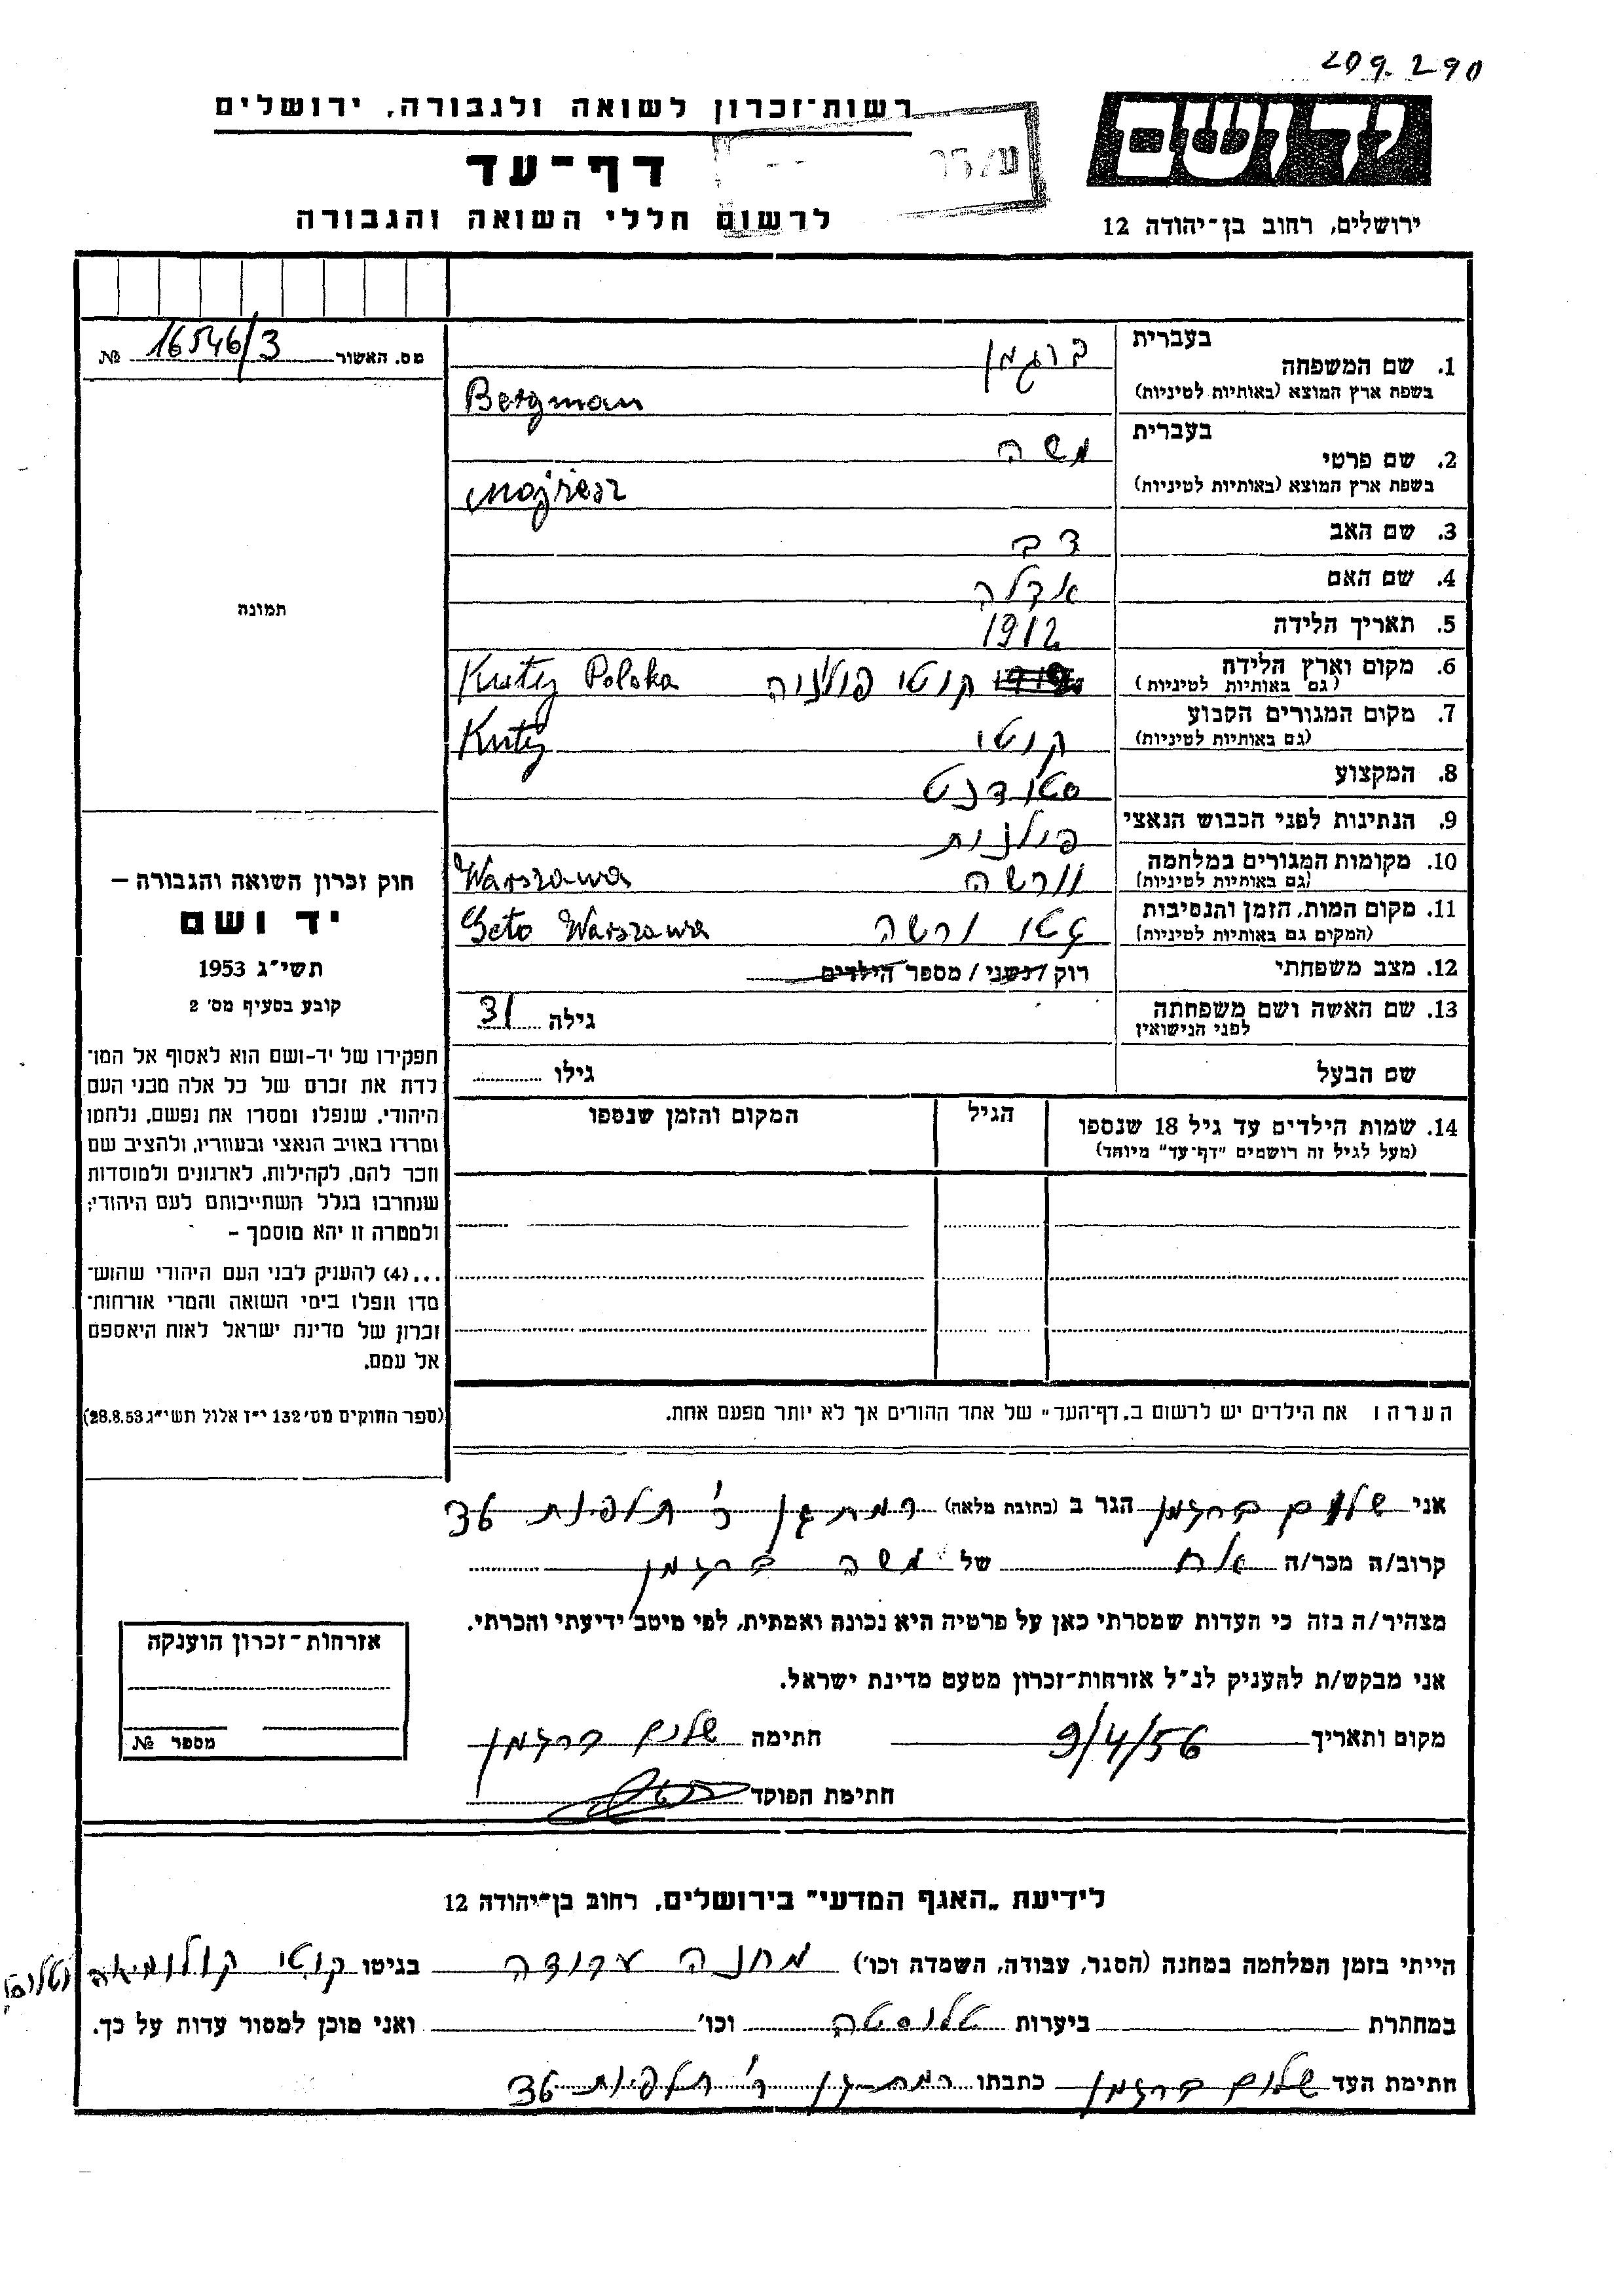 209.290
רשות־זכרון לשואה ולגבורה, ירושלים
דף־עד
לרשום חללי השואה והגבורה
יד ושם
ירושלים, רחוב בן־יהודה 12
מס. האשור 16546/3 №
בעברית
1. שם המשפחה ברגמן
בשפת ארץ המוצא (באותיות לטיניות) Bergman
בעברית
2. שם פרטי משה
בשפת ארץ המוצא (באותיות לטיניות) Mojżesz
3. שם האב דב
4. שם האם אדלה
5. תאריך הלידה 1912
6. מקום וארץ הלידה קוטי פולניה Kuty Polska
(גם באותיות לטיניות)
7. מקום המגורים הקבוע קוטי Kuty
(גם באותיות לטיניות)
8. המקצוע סטודנט
9. הנתינות לפני הכבוש הנאצי פולנית
10. מקומות המגורים במלחמה וורשה Warszawa
(גם באותיות לטיניות)
11. מקום המות, הזמן והנסיבות גטו ורשה Geto Warszawa
(המקום גם באותיות לטיניות)
12. מצב משפחתי רוק / נשני / מספר הילדים
13. שם האשה ושם משפחתה גילה 31
לפני הנישואין
שם הבעל גילו
14. שמות הילדים עד גיל 18 שנספו הגיל המקום והזמן שנספו
(מעל לגיל זה רושמים "דף־עד" מיוחד)
הערה: את הילדים יש לרשום ב„דף־העד" של אחד ההורים אך לא יותר מפעם אחת.
תמונה
חוק זכרון השואה והגבורה –
יד ושם
תשי"ג 1953
קובע בסעיף מס' 2
תפקידו של יד-ושם הוא לאסוף אל המו־
לדת את זכרם של כל אלה מבני העם
היהודי, שנפלו ומסרו את נפשם, נלחמו
ומרדו באויב הנאצי ובעוזריו, ולהציב שם
וזכר להם, לקהילות, לארגונים ולמוסדות
שנחרבו בגלל השתייכותם לעם היהודי;
ולמטרה זו יהא מוסמך –
...(4) להעניק לבני העם היהודי שהוש־
מדו ונפלו בימי השואה והמרי אזרחות־
זכרון של מדינת ישראל לאות היאספם
אל עמם.
(ספר החוקים מס' 132 י"ז אלול תשי"ג 28.8.53)
אני שלום ברגמן הגר ב (כתובת מלאה) רמת גן ר' תלפיות 36
קרוב/ה מכר/ה אח של משה ברגמן
מצהיר/ה בזה כי העדות שמסרתי כאן על פרטיה היא נכונה ואמתית, לפי מיטב ידיעתי והכרתי.
אני מבקש/ת להעניק לנ"ל אזרחות־זכרון מטעם מדינת ישראל.
מקום ותאריך 9/4/56 חתימה שלום ברגמן
חתימת הפוקד
אזרחות־זכרון הוענקה
מספר №
לידיעת „האגף המדעי" בירושלים, רחוב בן־יהודה 12
הייתי בזמן המלחמה במחנה (הסגר, עבודה, השמדה וכו') מחנה עבודה בגיטו קוטי קולומיאה
במחתרת ביערות טלוסטה וכו' ואני מוכן למסור עדות על כך.
חתימת העד שלום ברגמן כתבתו רמת גן ר' תלפיות 36